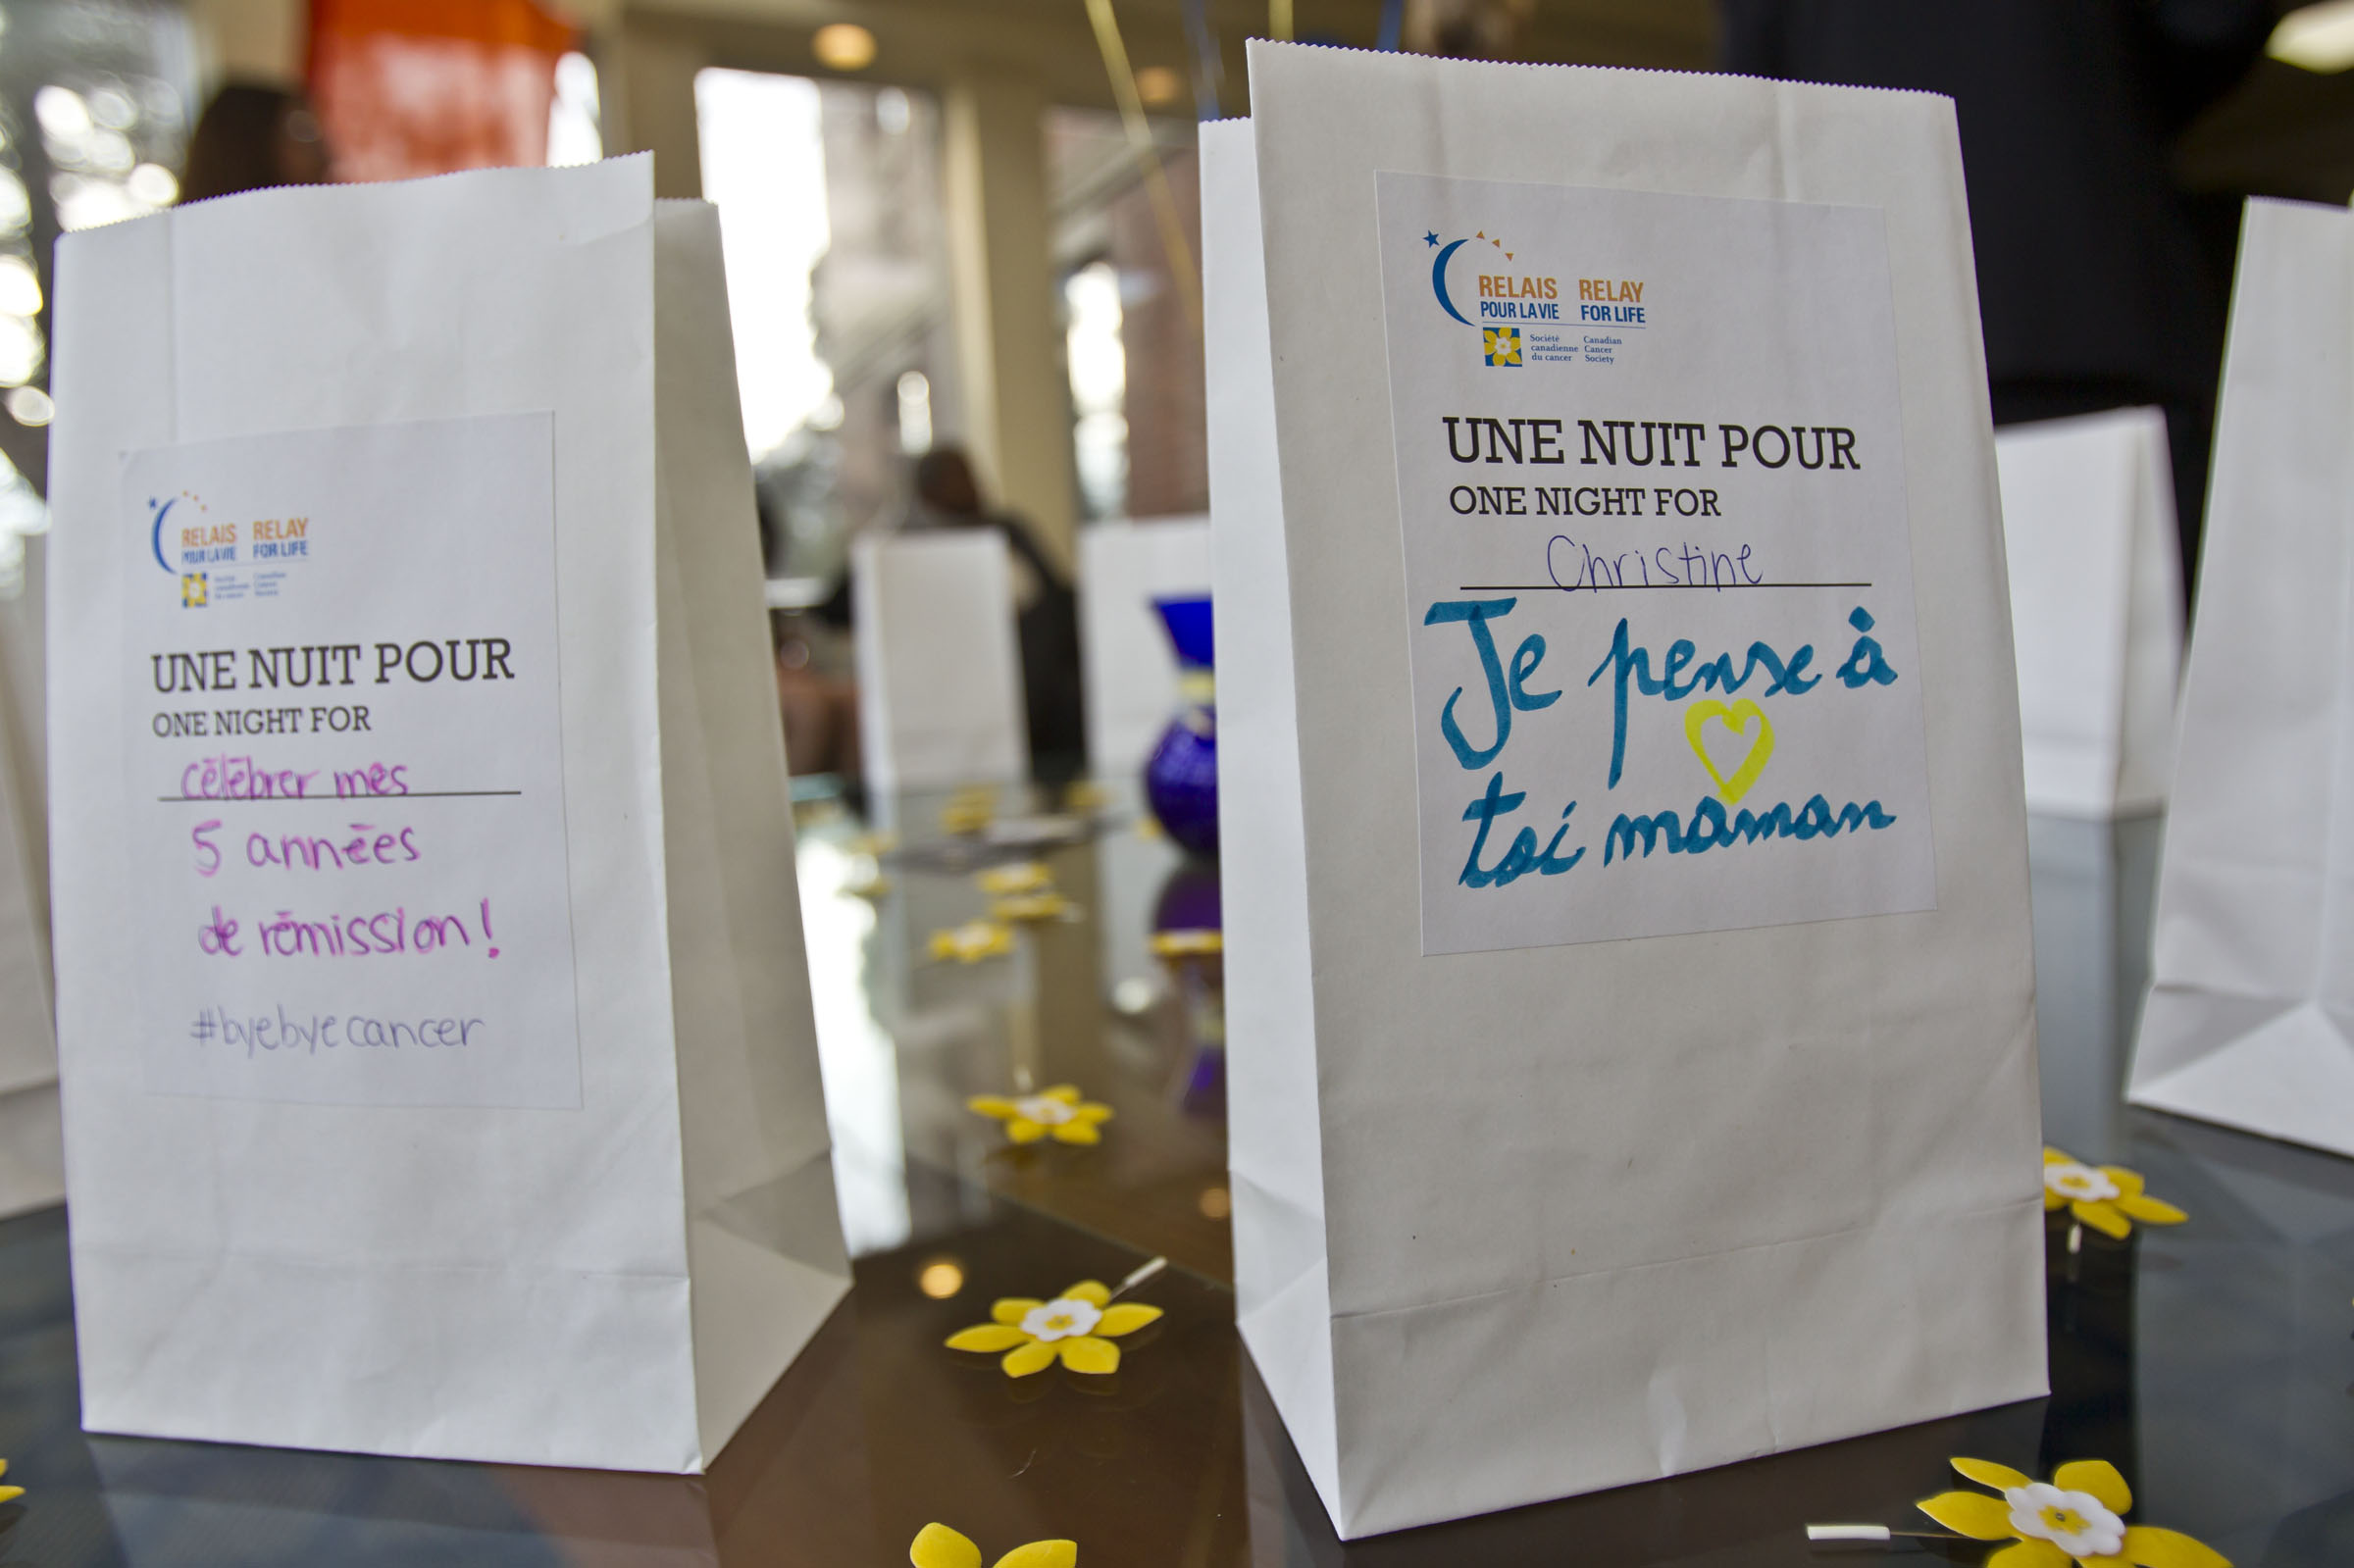 RELAIS RELAY
POUR LA VIE FOR LIFE
Société Canadian
canadienne Cancer
du cancer Society
UNE NUIT POUR
ONE NIGHT FOR
célébrer mes
5 années
de rémission!
#byebyecancer
RELAIS RELAY
POUR LA VIE FOR LIFE
Société Canadian
canadienne Cancer
du cancer Society
UNE NUIT POUR
ONE NIGHT FOR
Christine
Je pense à
toi maman